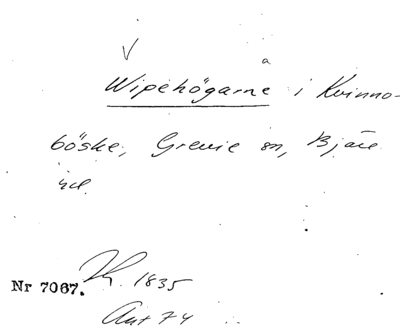 V a
Wipehögarne i Kvinno-
böske, Grevie sn, Bjäre
hd.
Nr 7067. 1835
Ant 74